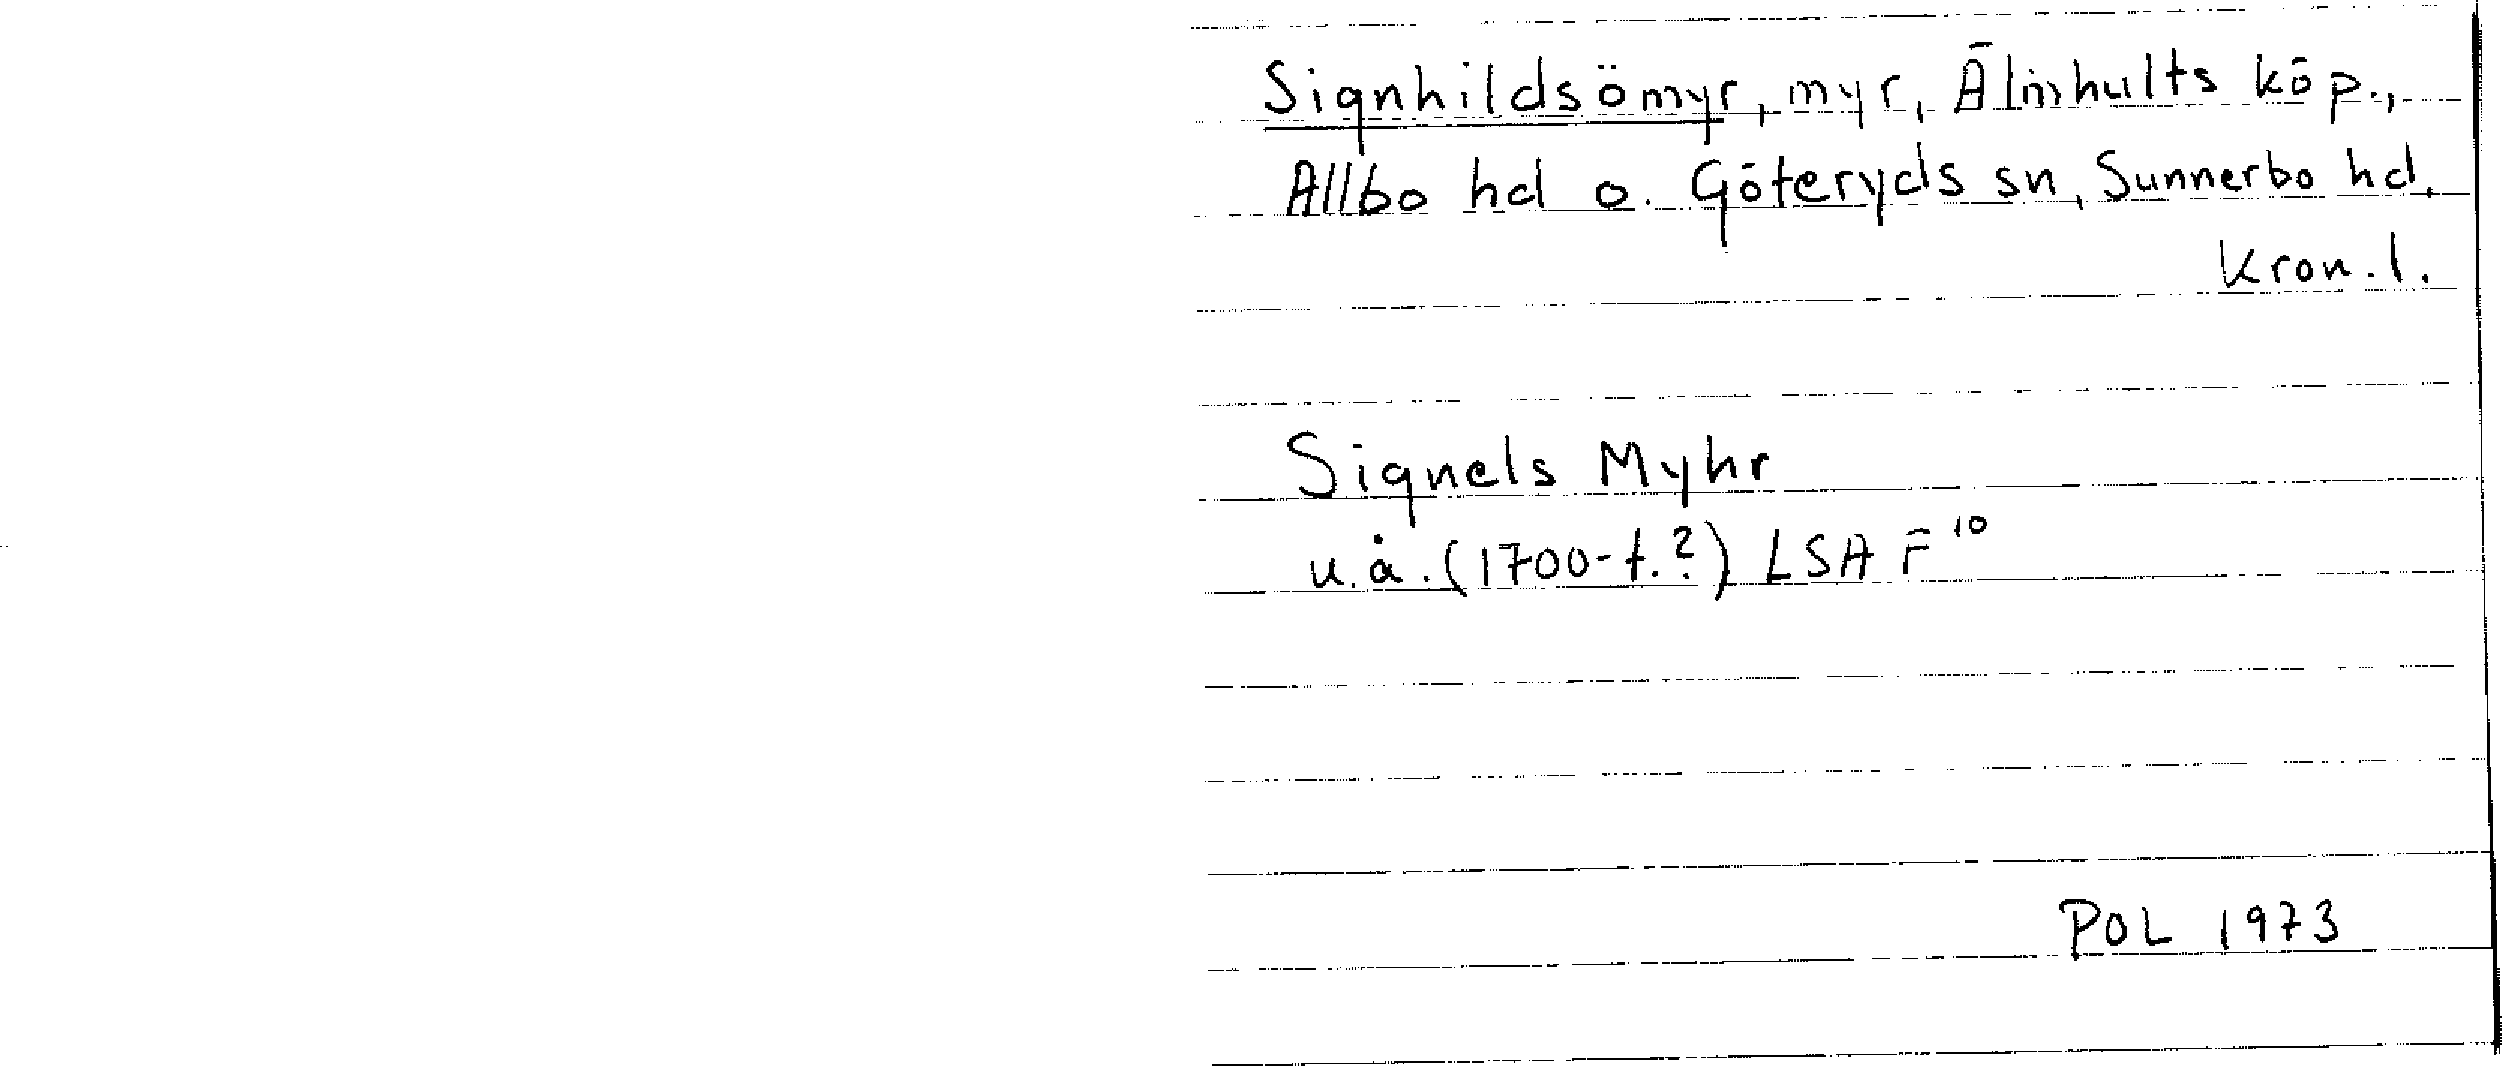 Signhildsömyr, myr, Älmhults köp.,
Allbo hd o. Göteryds sn, Sunnerbo hd.
Kron. l.
Signels Myhr
u.å. (1700-t.?) LSA F¹⁰
POL 1973